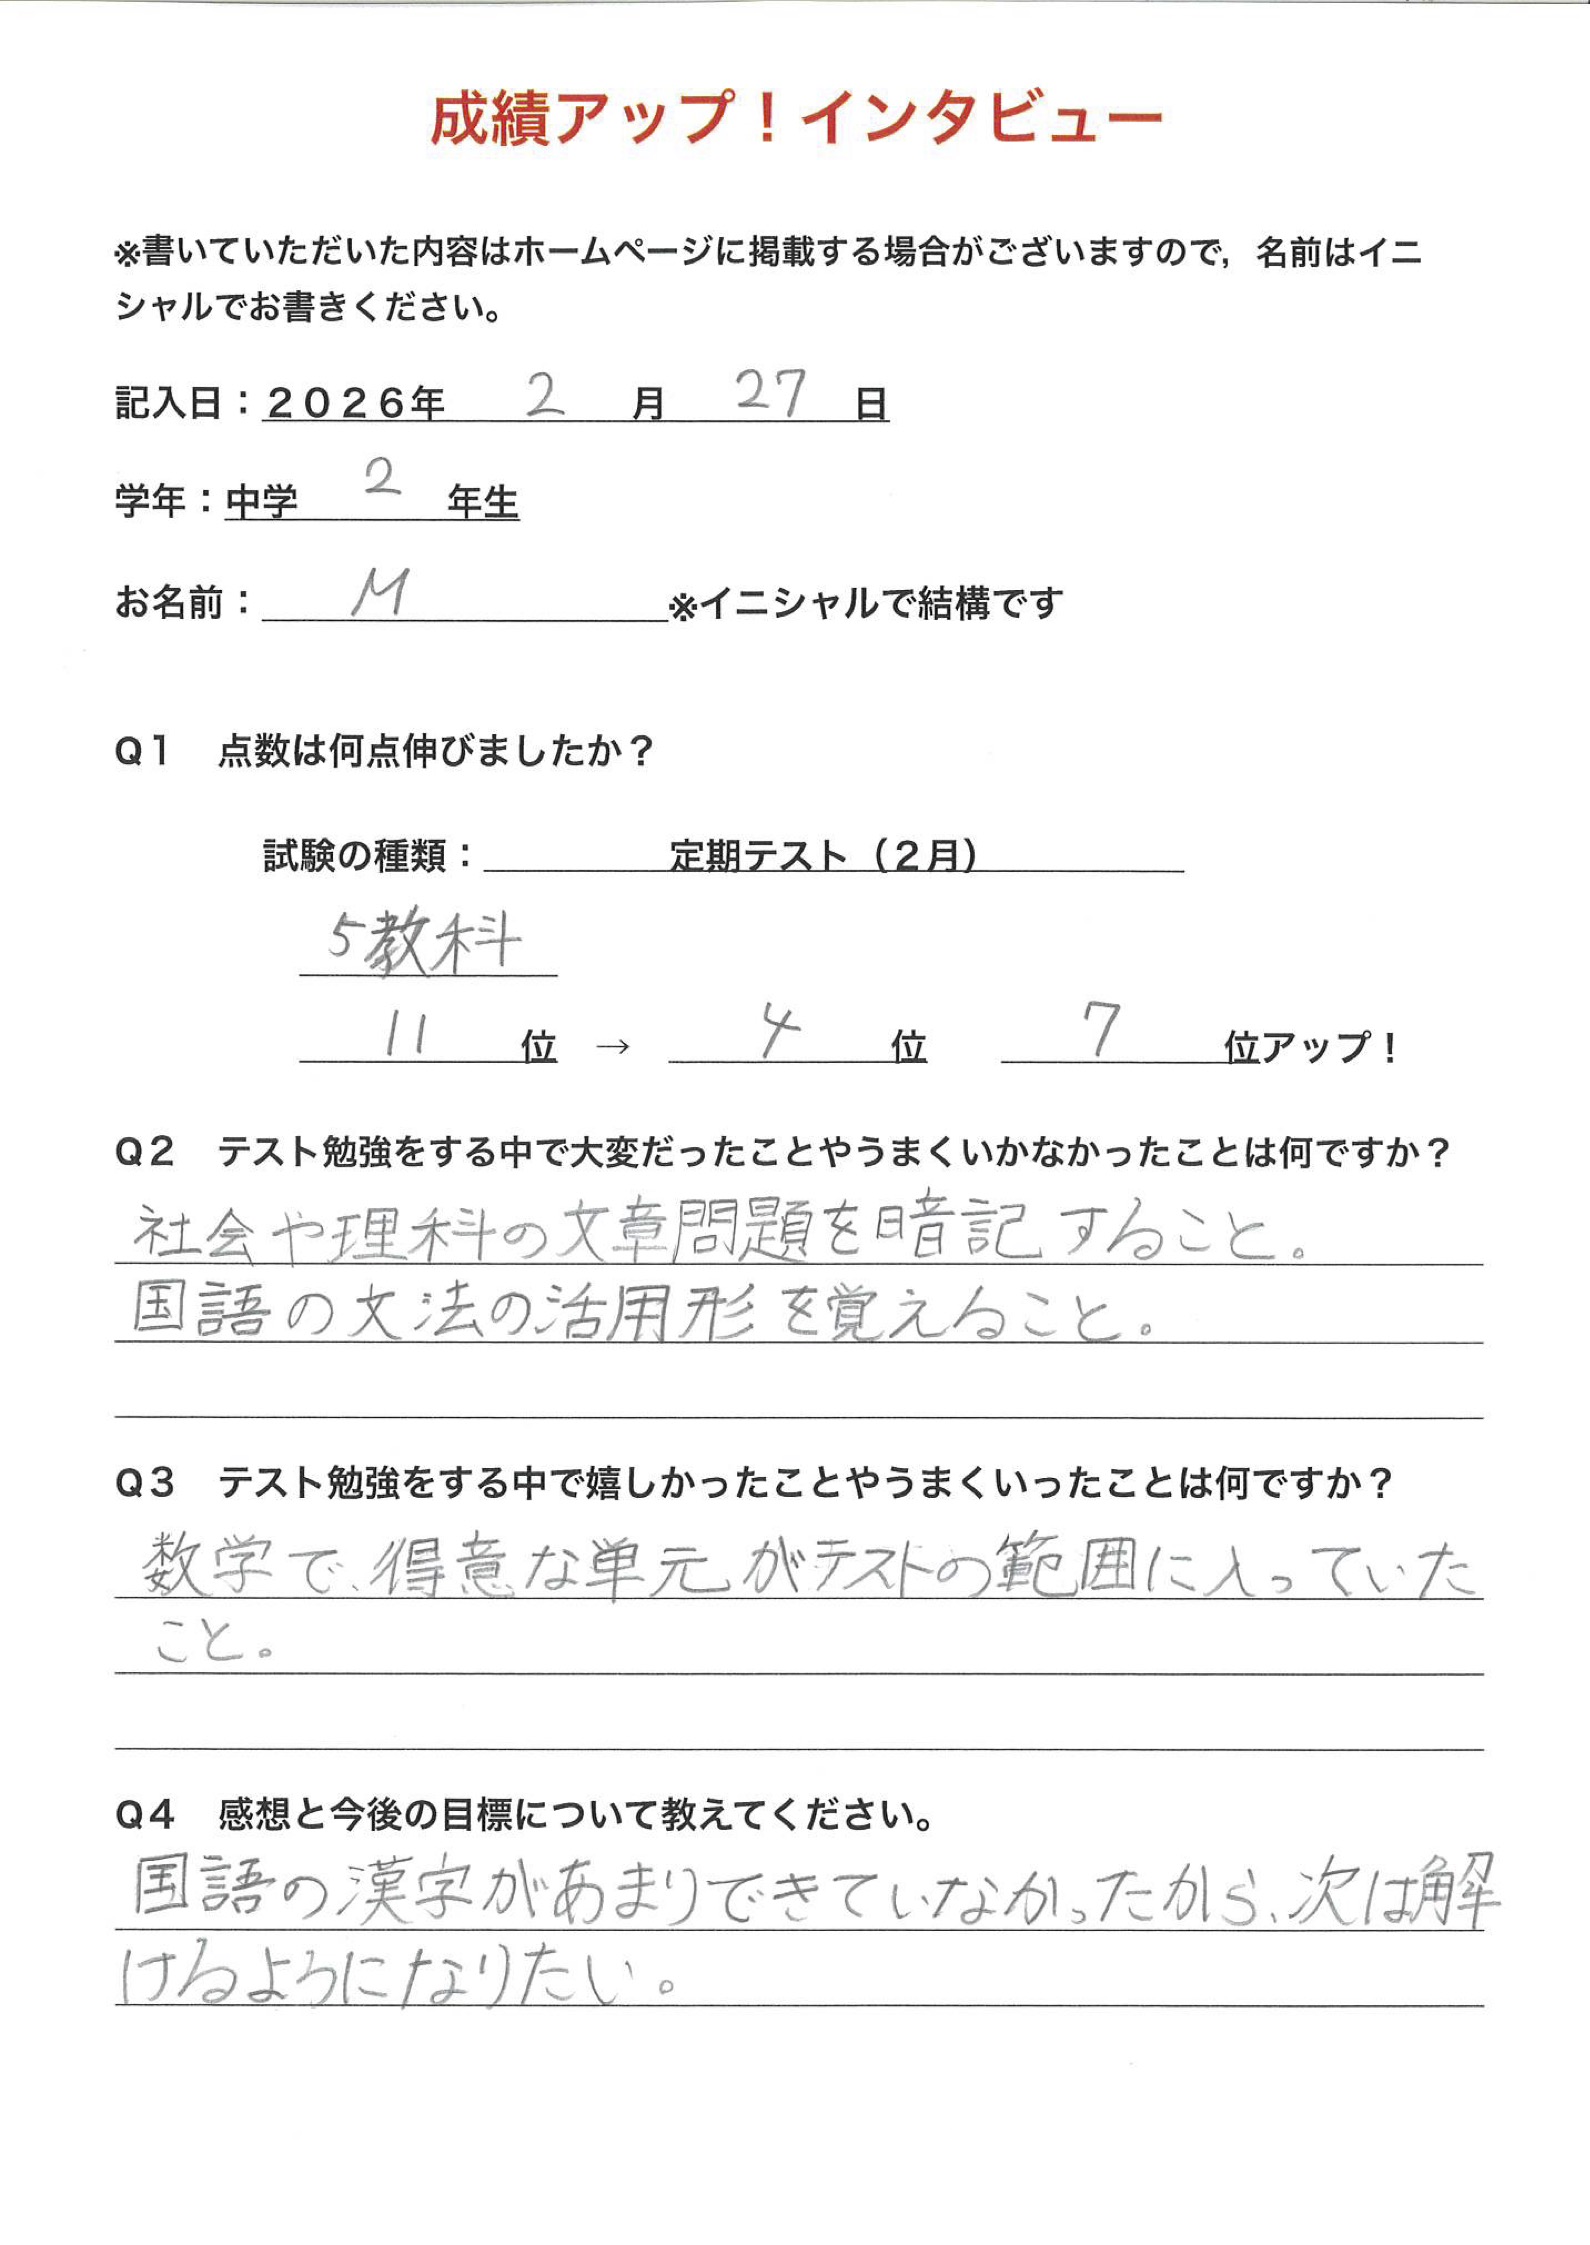 成績アップ！インタビュー
※書いていただいた内容はホームページに掲載する場合がございますので，名前はイニ
シャルでお書きください。
記入日：２０２６年 2 月 27 日
学年：中学 2 年生
お名前： M ※イニシャルで結構です
Ｑ１ 点数は何点伸びましたか？
試験の種類： 定期テスト（２月）
5教科
11 位 → 4 位 7 位アップ！
Ｑ２ テスト勉強をする中で大変だったことやうまくいかなかったことは何ですか？
社会や理科の文章問題を暗記すること。
国語の文法の活用形を覚えること。
Ｑ３ テスト勉強をする中で嬉しかったことやうまくいったことは何ですか？
数学で、得意な単元がテストの範囲に入っていた
こと。
Ｑ４ 感想と今後の目標について教えてください。
国語の漢字があまりできていなかったから、次は解
けるようになりたい。